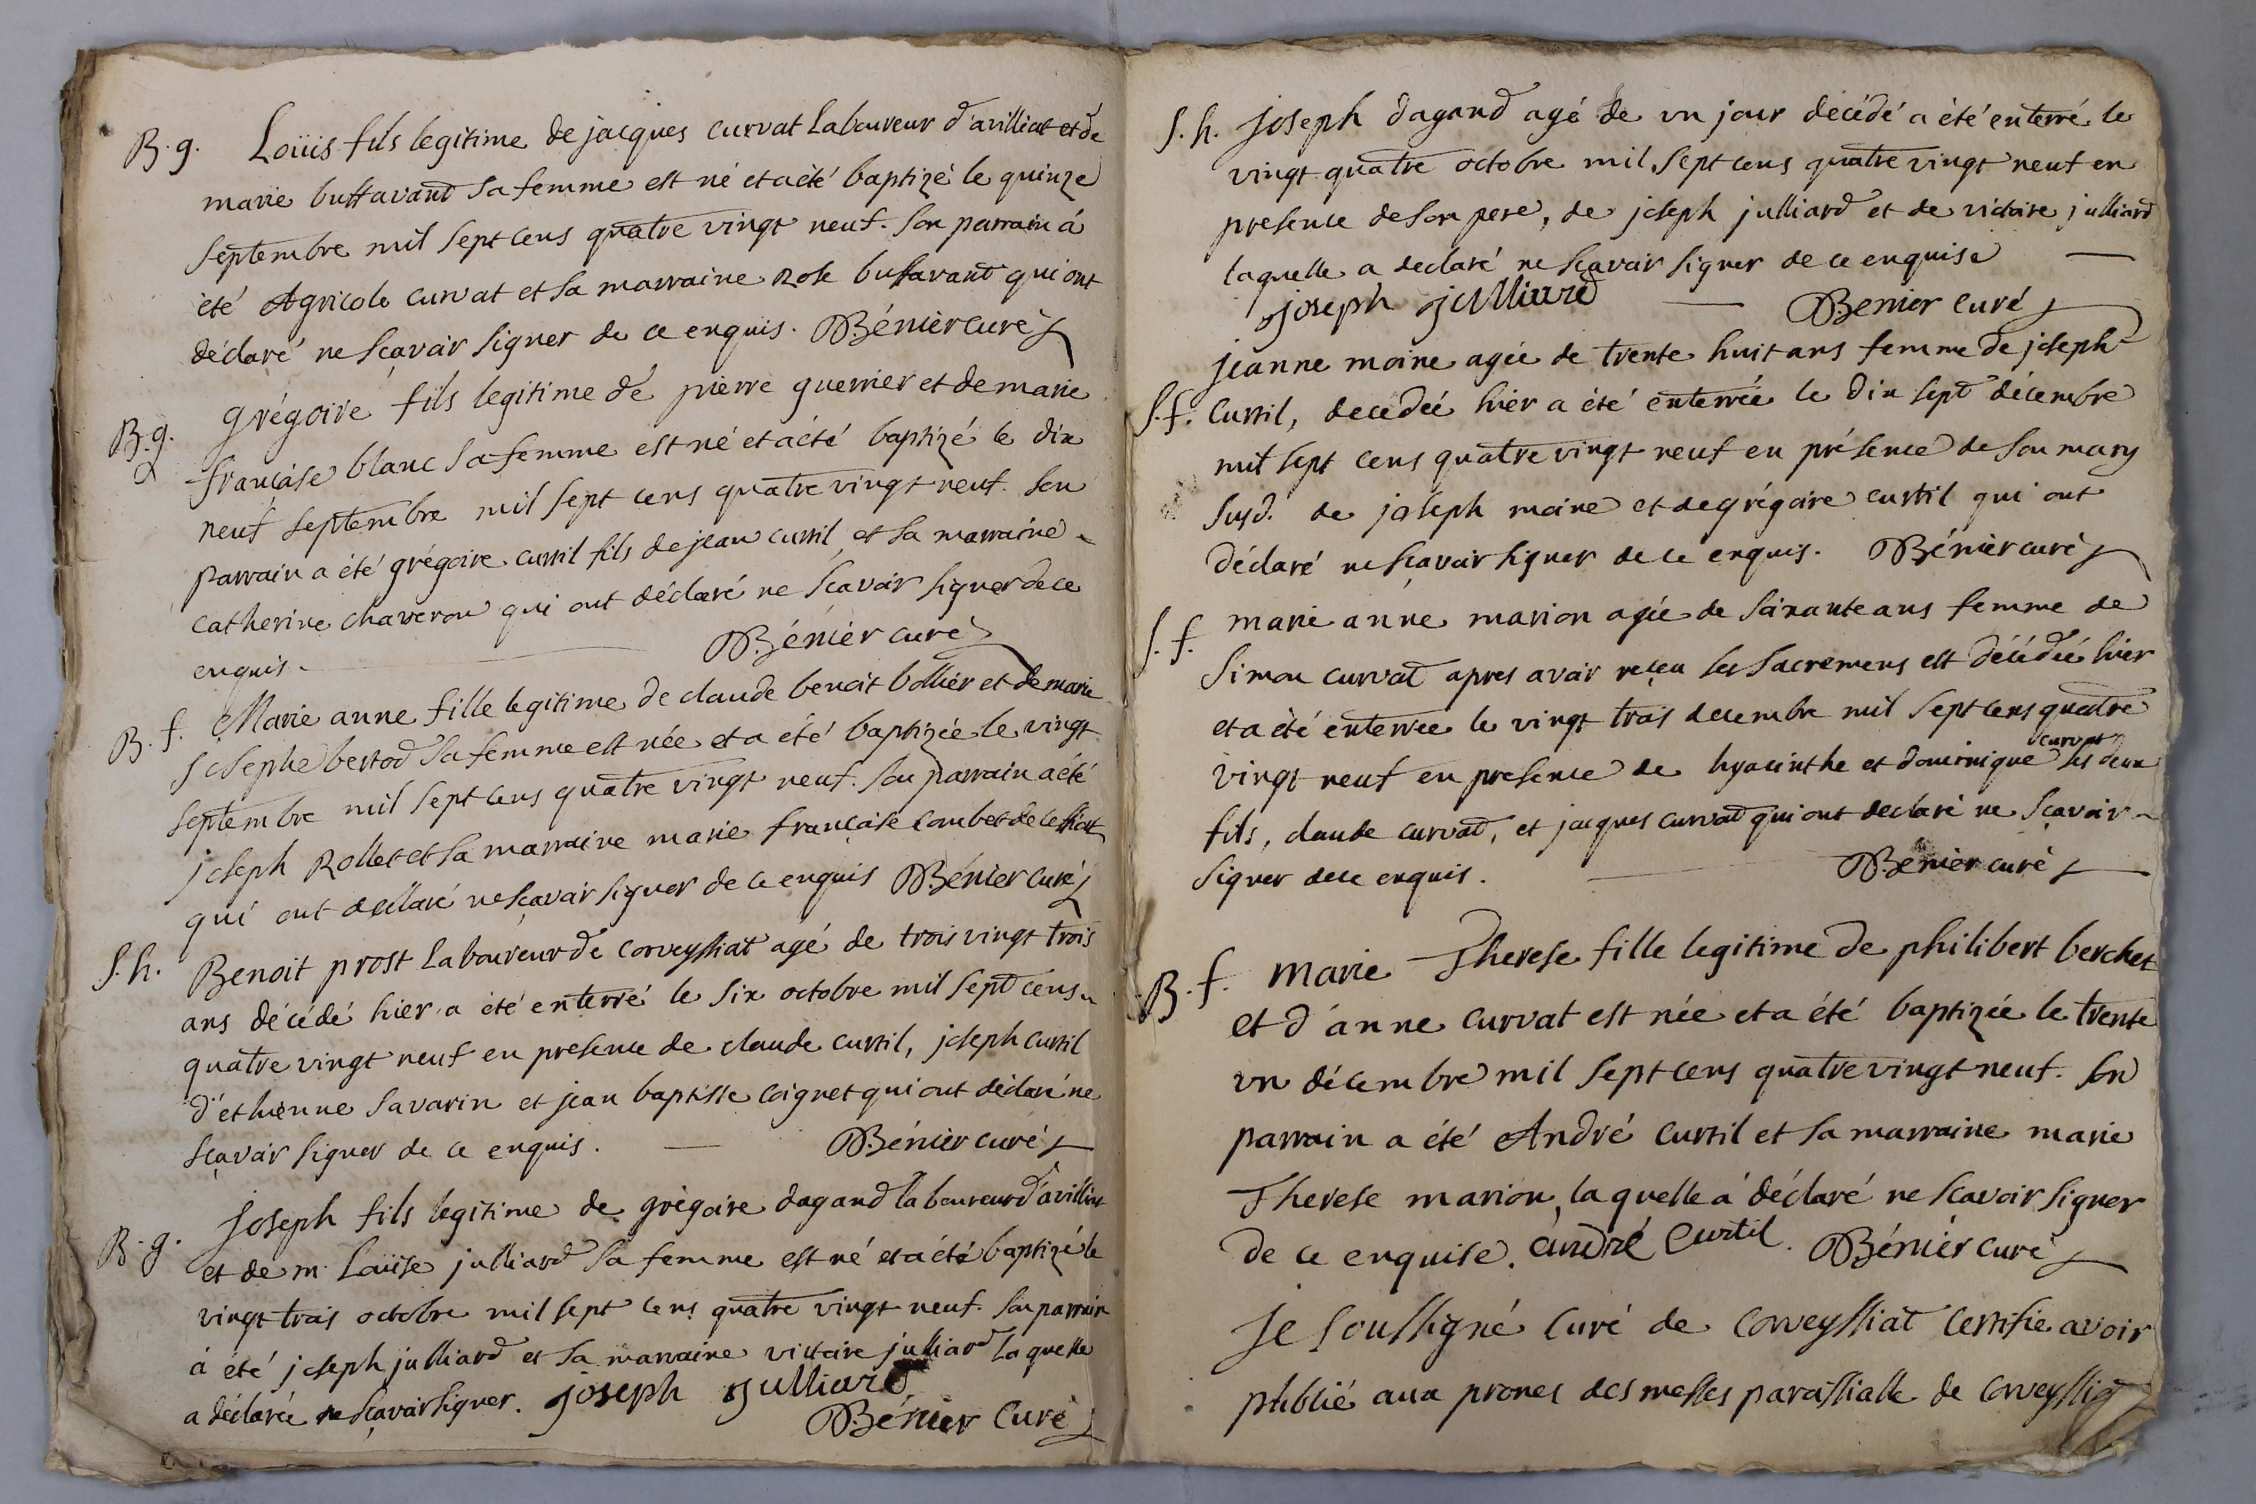 B. g. Loüis fils legitime de jacques curvat laboureur d'avilliat et de
marie buffavand sa femme est né et a été baptizé le quinze
septembre mil sept cens quatre vingt neuf. son parrain à
été Agricole curvat et sa marraine Rose buffavand qui ont
déclaré ne sçavoir signer de ce enquis. Bénier curé
B. g. grégoire fils legitime de pierre guerrier et de marie
françoise blanc sa femme est né et a été baptizé le dix
neuf septembre mil sept cens quatre vingt neuf. son
parrain a été grégoire curtil fils de jean curtil et sa marraine
catherine chaveron qui ont déclaré ne sçavoir signer de ce
enquis. Bénier curé
B. f. Marie anne fille legitime de claude benoit bollier et de marie
josephe bertod sa femme est née et a été baptizée le vingt
septembre mil sept cens quatre vingt neuf. son parrain a été
joseph Rollet et sa marraine marie françoise combet de
qui ont declaré ne sçavoir signer de ce enquis Bénier curé
S. h. Benoit prost laboureur de corveyssiat agé de trois vingt trois
ans décédé hier a été enterré le six octobre mil sept cens
quatre vingt neuf en presence de claude curtil, joseph curtil
d'ethienne savarin et jean baptiste coignet qui ont déclaré ne
sçavoir signer de ce enquis. Bénier curé
B. g. joseph fils legitime de grégoire dagand laboureur d'avilliat
et de m. Loüise julliard sa femme est né et a été baptizé le
vingt trois octobre mil sept cens quatre vingt neuf. son parrain
à été joseph julliard et sa marraine victoire julliard laquelle
a déclarée ne sçavoir signer. joseph julliard
Bénier curé
S. h. joseph dagand agé de un jour décédé a été enterré le
vingt quatre octobre mil sept cens quatre vingt neuf en
presence de son pere, de joseph julliard et de victoire julliard
laquelle a declaré ne sçavoir signer de ce enquise
joseph julliard Benier curé
jeanne moine agée de trente huit ans femme de joseph
S. f. Curtil, decedée hier a été enterrée le dix sept décembre
mil sept cens quatre vingt neuf en présence de son mary
susd. de joseph moine et de grégoire curtil qui ont
déclaré ne sçavoir signer de ce enquis. Bénier curé
S. f. marie anne marion agée de soixante ans femme de
Simon curvad apres avoir reçeu les sacremens est décédée hier
et a été enterrée le vingt trois decembre mil sept cens quatre
curvat
vingt neuf en presence de hyacinthe et dominique ses deux
fils, claude curvad, et jacques curvad qui ont declaré ne sçavoir
signer de ce enquis. Bénier curé
B. f. marie Therese fille legitime de philibert berchet
et d'anne curvat est née et a été baptizée le trente
un décembre mil sept cens quatre vingt neuf. son
parrain a été André curtil et sa marraine marie
Therese marion, laquelle à déclaré ne sçavoir signer
de ce enquise. andré Curtil. Bénier curé
je soussigné curé de corveyssiat certifie avoir
publié aux prones des messes paroissialle de corveyssiat